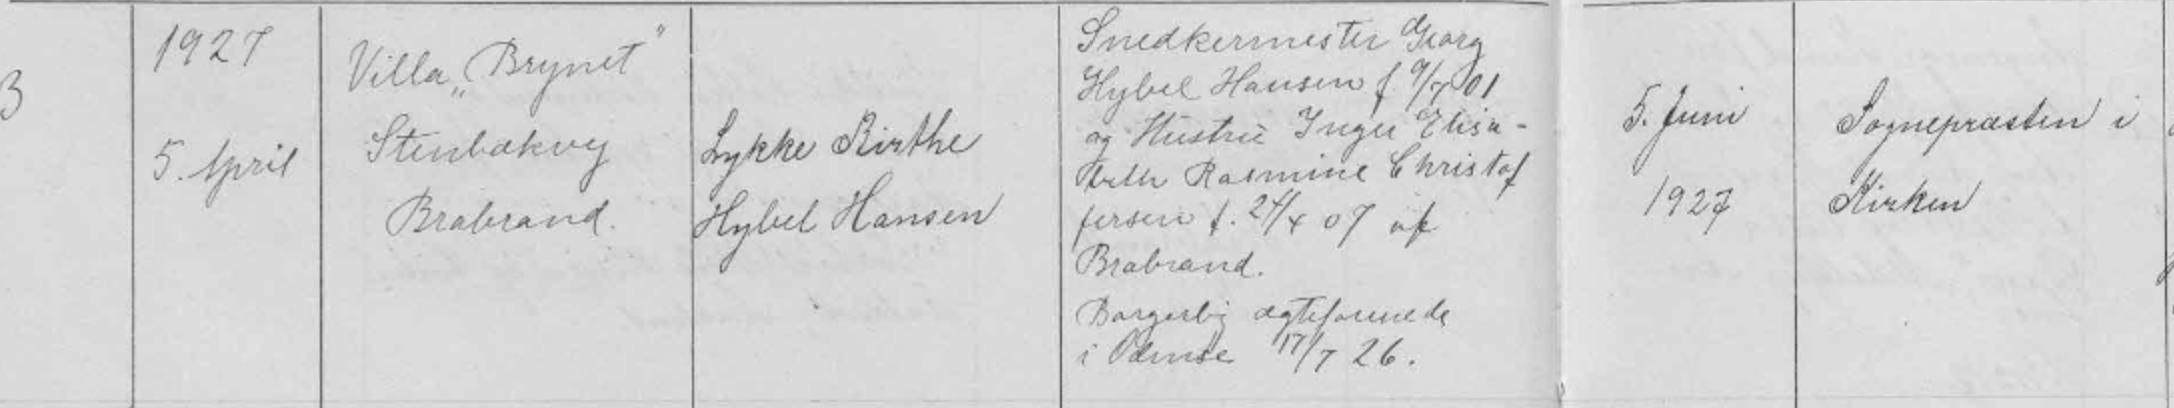 3
1927
5. April
Villa „Brynet"
Stenbækvej
Brabrand.
Lykke Birthe
Hybel Hansen
Snedkermester Georg
Hybel Hansen f 9/7 01
og Hustru Inger Elisa-
beth Rasmine Christof
fersen f. 24/4 07 af
Brabrand.
Borgerlig ægteforenede
i Odense 17/7 26.
5. Juni
1927
Sognepræsten i
Kirken